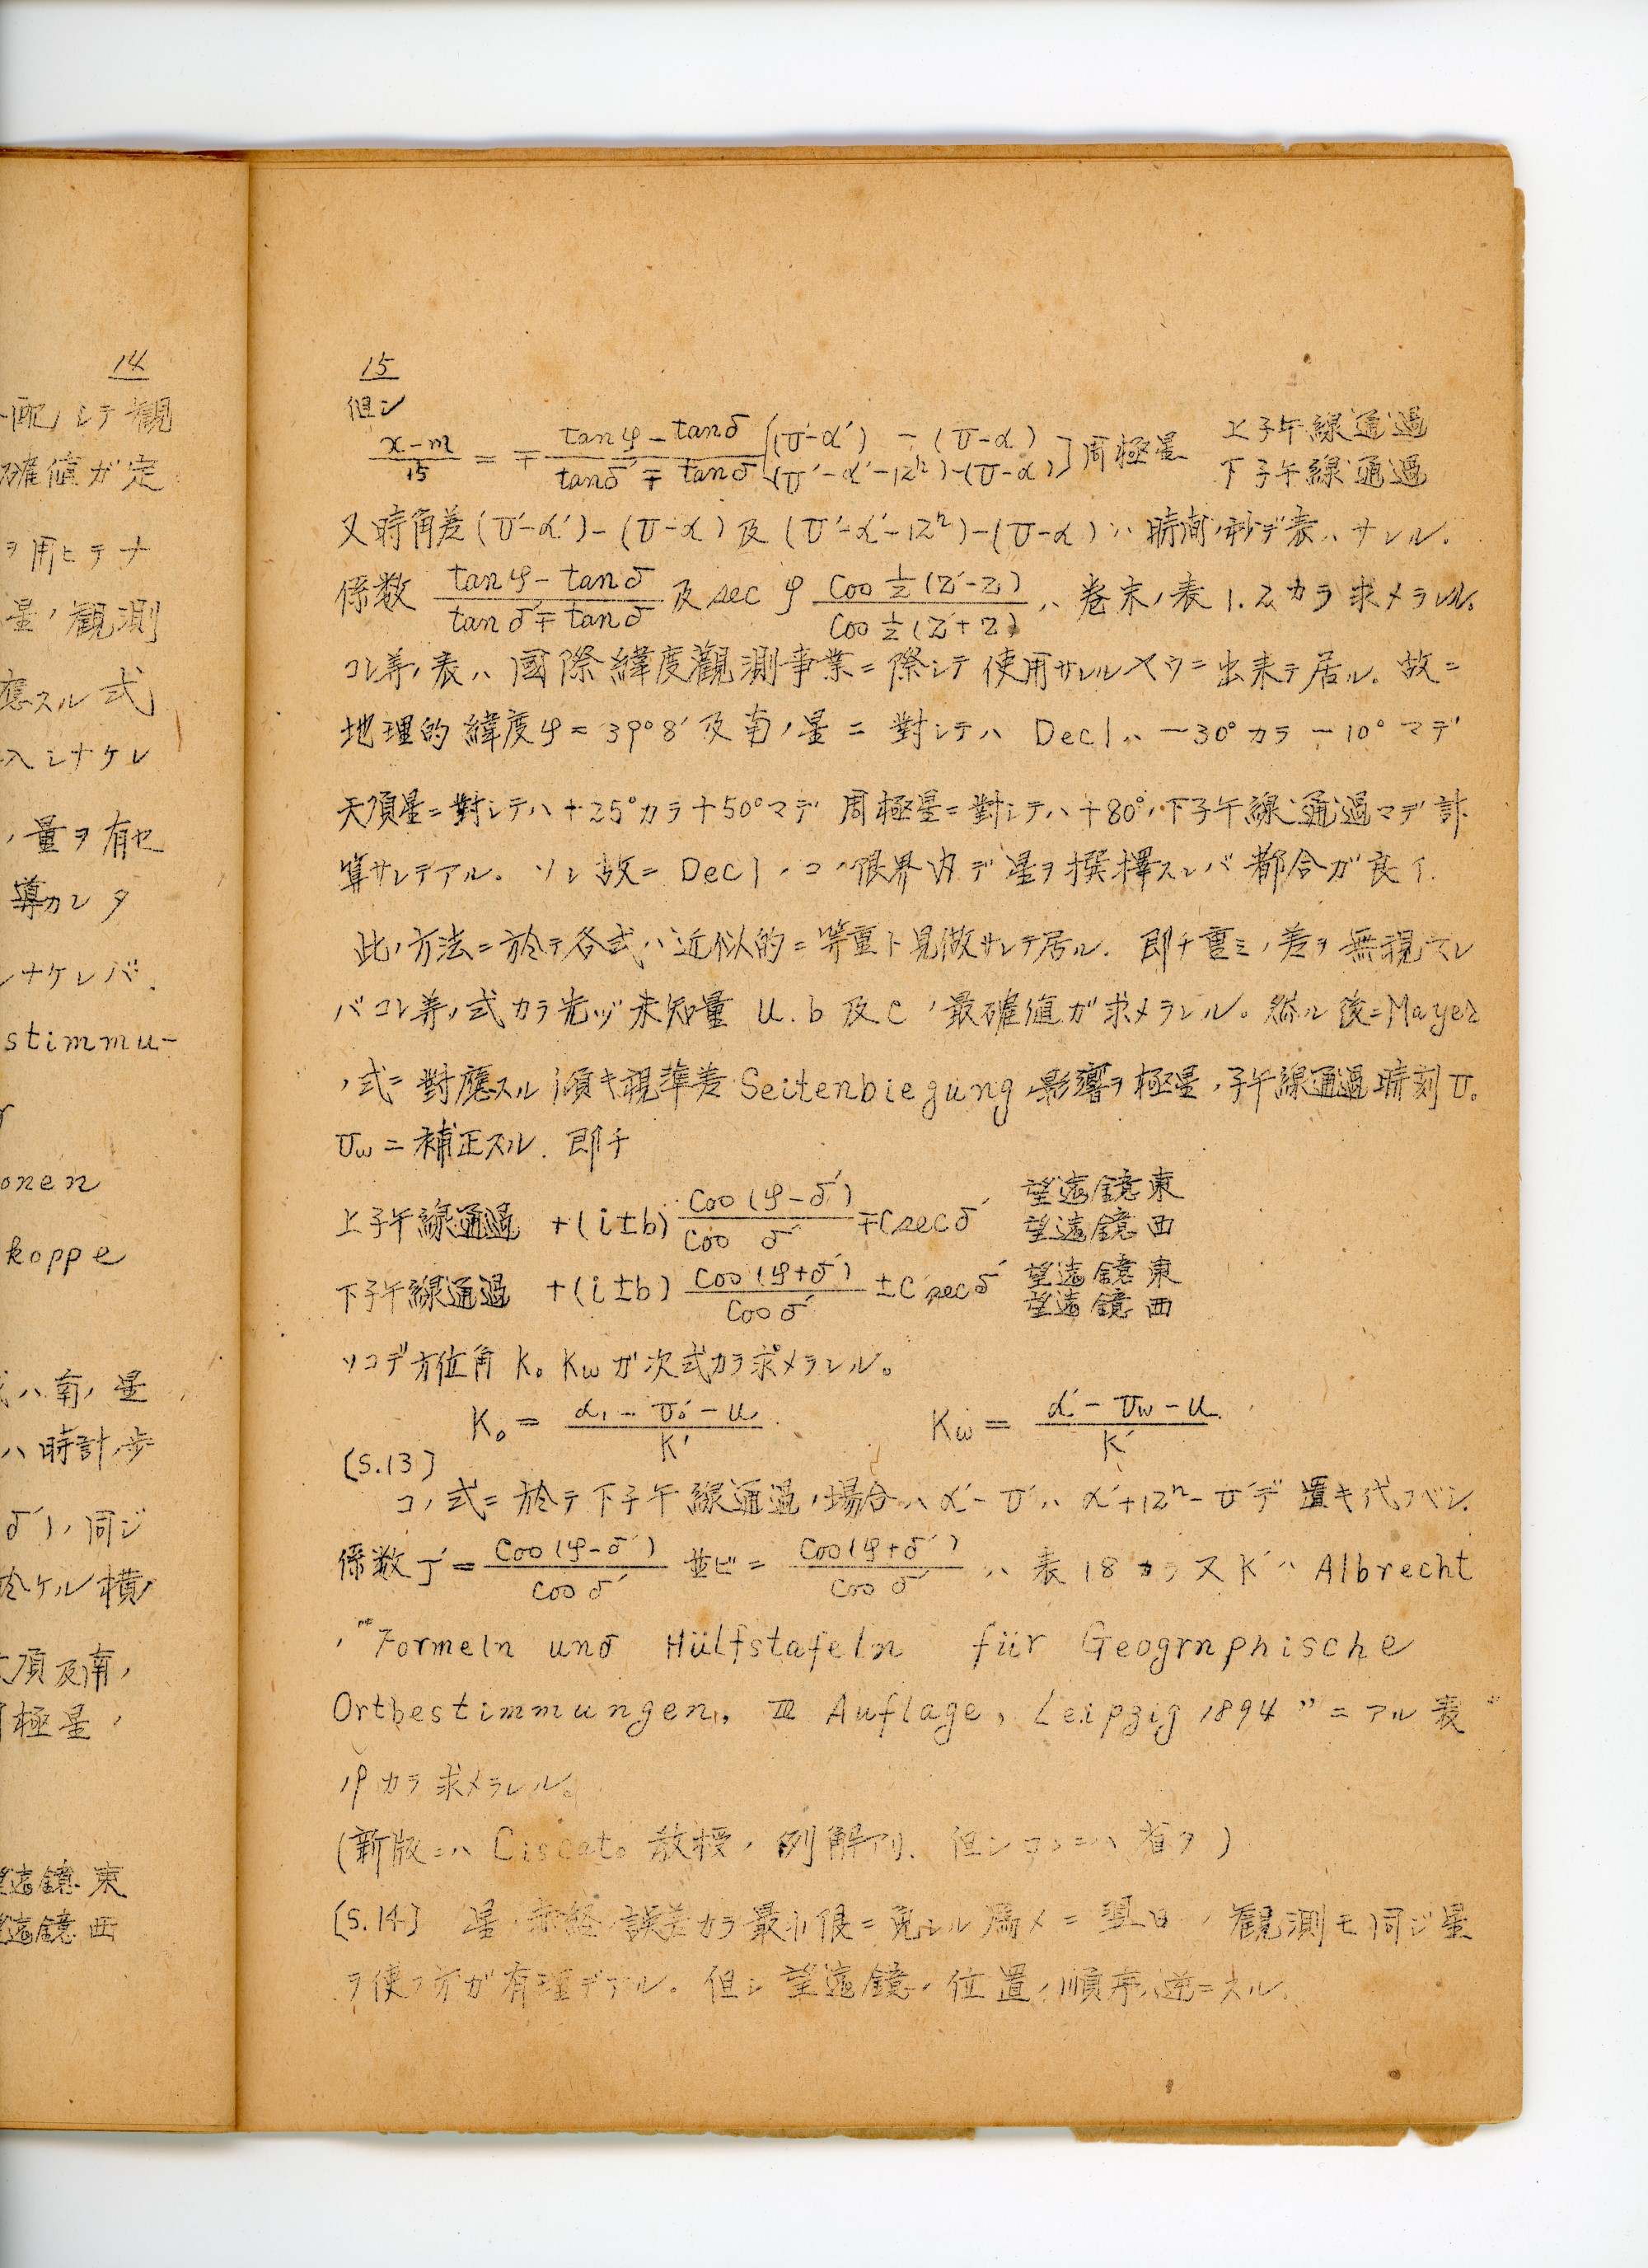 14
配シテ観
確値ガ定
ヲ用ヒテナ
星ノ観測
應スル式
入シナケレ
ノ量ヲ有セ
導カレタ
ナケレバ.
stimmu-
onen
koppe
ハ南ノ星
ハ時計ノ歩
δ′)ノ同ジ
於ケル横
頂及南ノ
極星ノ
望遠鏡東
望遠鏡西
15
但シ
(x-m)/15 = ∓ (tanφ-tanδ)/(tanδ′∓tanδ) [(U′-α′) - (U-α) / (U′-α′-12ʰ)-(U-α)] 周極星 上子午線通過 / 下子午線通過
又時角差(U′-α′)-(U-α)及(U′-α′-12ʰ)-(U-α)ハ時間ノ秒デ表ハサレル.
係数 (tanφ-tanδ)/(tanδ′∓tanδ) 及 sec φ (Cos ½(Z′-Z))/(Cos ½(Z′+Z)) ハ巻末ノ表1.2カラ求メラレル.
コレ等ノ表ハ國際緯度觀測事業ニ際シテ使用サレルヤウニ出来テ居ル. 故ニ
地理的緯度φ=39°8′及南ノ星ニ對シテハ Decl ハ -30°カラ-10°マデ
天頂星ニ對シテハ+25°カラ+50°マデ 周極星ニ對シテハ+80°ノ下子午線通過マデ計
算サレテアル. ソレ故ニ Decl ノコノ限界内デ星ヲ撰擇スレバ都合ガ良イ.
此ノ方法ニ於テ各式ハ近似的ニ等重ト見做サレテ居ル. 即チ重ミノ差ヲ無視スレ
バコレ等ノ式カラ先ヅ未知量 U.b及C ノ最確値ガ求メラレル。然ル後ニMayer
ノ式ニ對應スル傾キ視準差 Seitenbiegung ノ影響ヲ極星ノ子午線通過時刻U₀
Uw ニ補正スル. 即チ
上子午線通過 +(i±b) (Cos(φ-δ′))/(Cos δ′) ∓C sec δ′ 望遠鏡東 / 望遠鏡西
下子午線通過 +(i±b) (Cos(φ+δ′))/(Cos δ′) ±C sec δ′ 望遠鏡東 / 望遠鏡西
ソコデ方位角 K₀ Kw ガ次式カラ求メラレル。
K₀ = (α′-U₀′-u)/K′ Kw = (α′-Uw-u)/K′
[S.13]
コノ式ニ於テ下子午線通過ノ場合ハ α′-U′ハ α′+12ʰ-U′デ置キ代フベシ.
係数J′=(Cos(φ-δ′))/(Cos δ′) 並ビニ (Cos(φ+δ′))/(Cos δ′) ハ表18カラ又K′ハ Albrecht
ノ "Formeln und Hülfstafeln für Geogrnphische
Ortbestimmungen, III Auflage, Leipzig 1894" ニアル表
カラ求メラレル。
(新版ニハ Ciscato 教授ノ例解アリ. 但シココニハ省ク)
[S.14] 星ノ赤経ノ誤差カラ最小限ニ免レル為メニ翌日ノ観測モ同ジ星
ヲ使フ方ガ有理デアル. 但シ望遠鏡ノ位置ノ順序ハ逆ニスル.